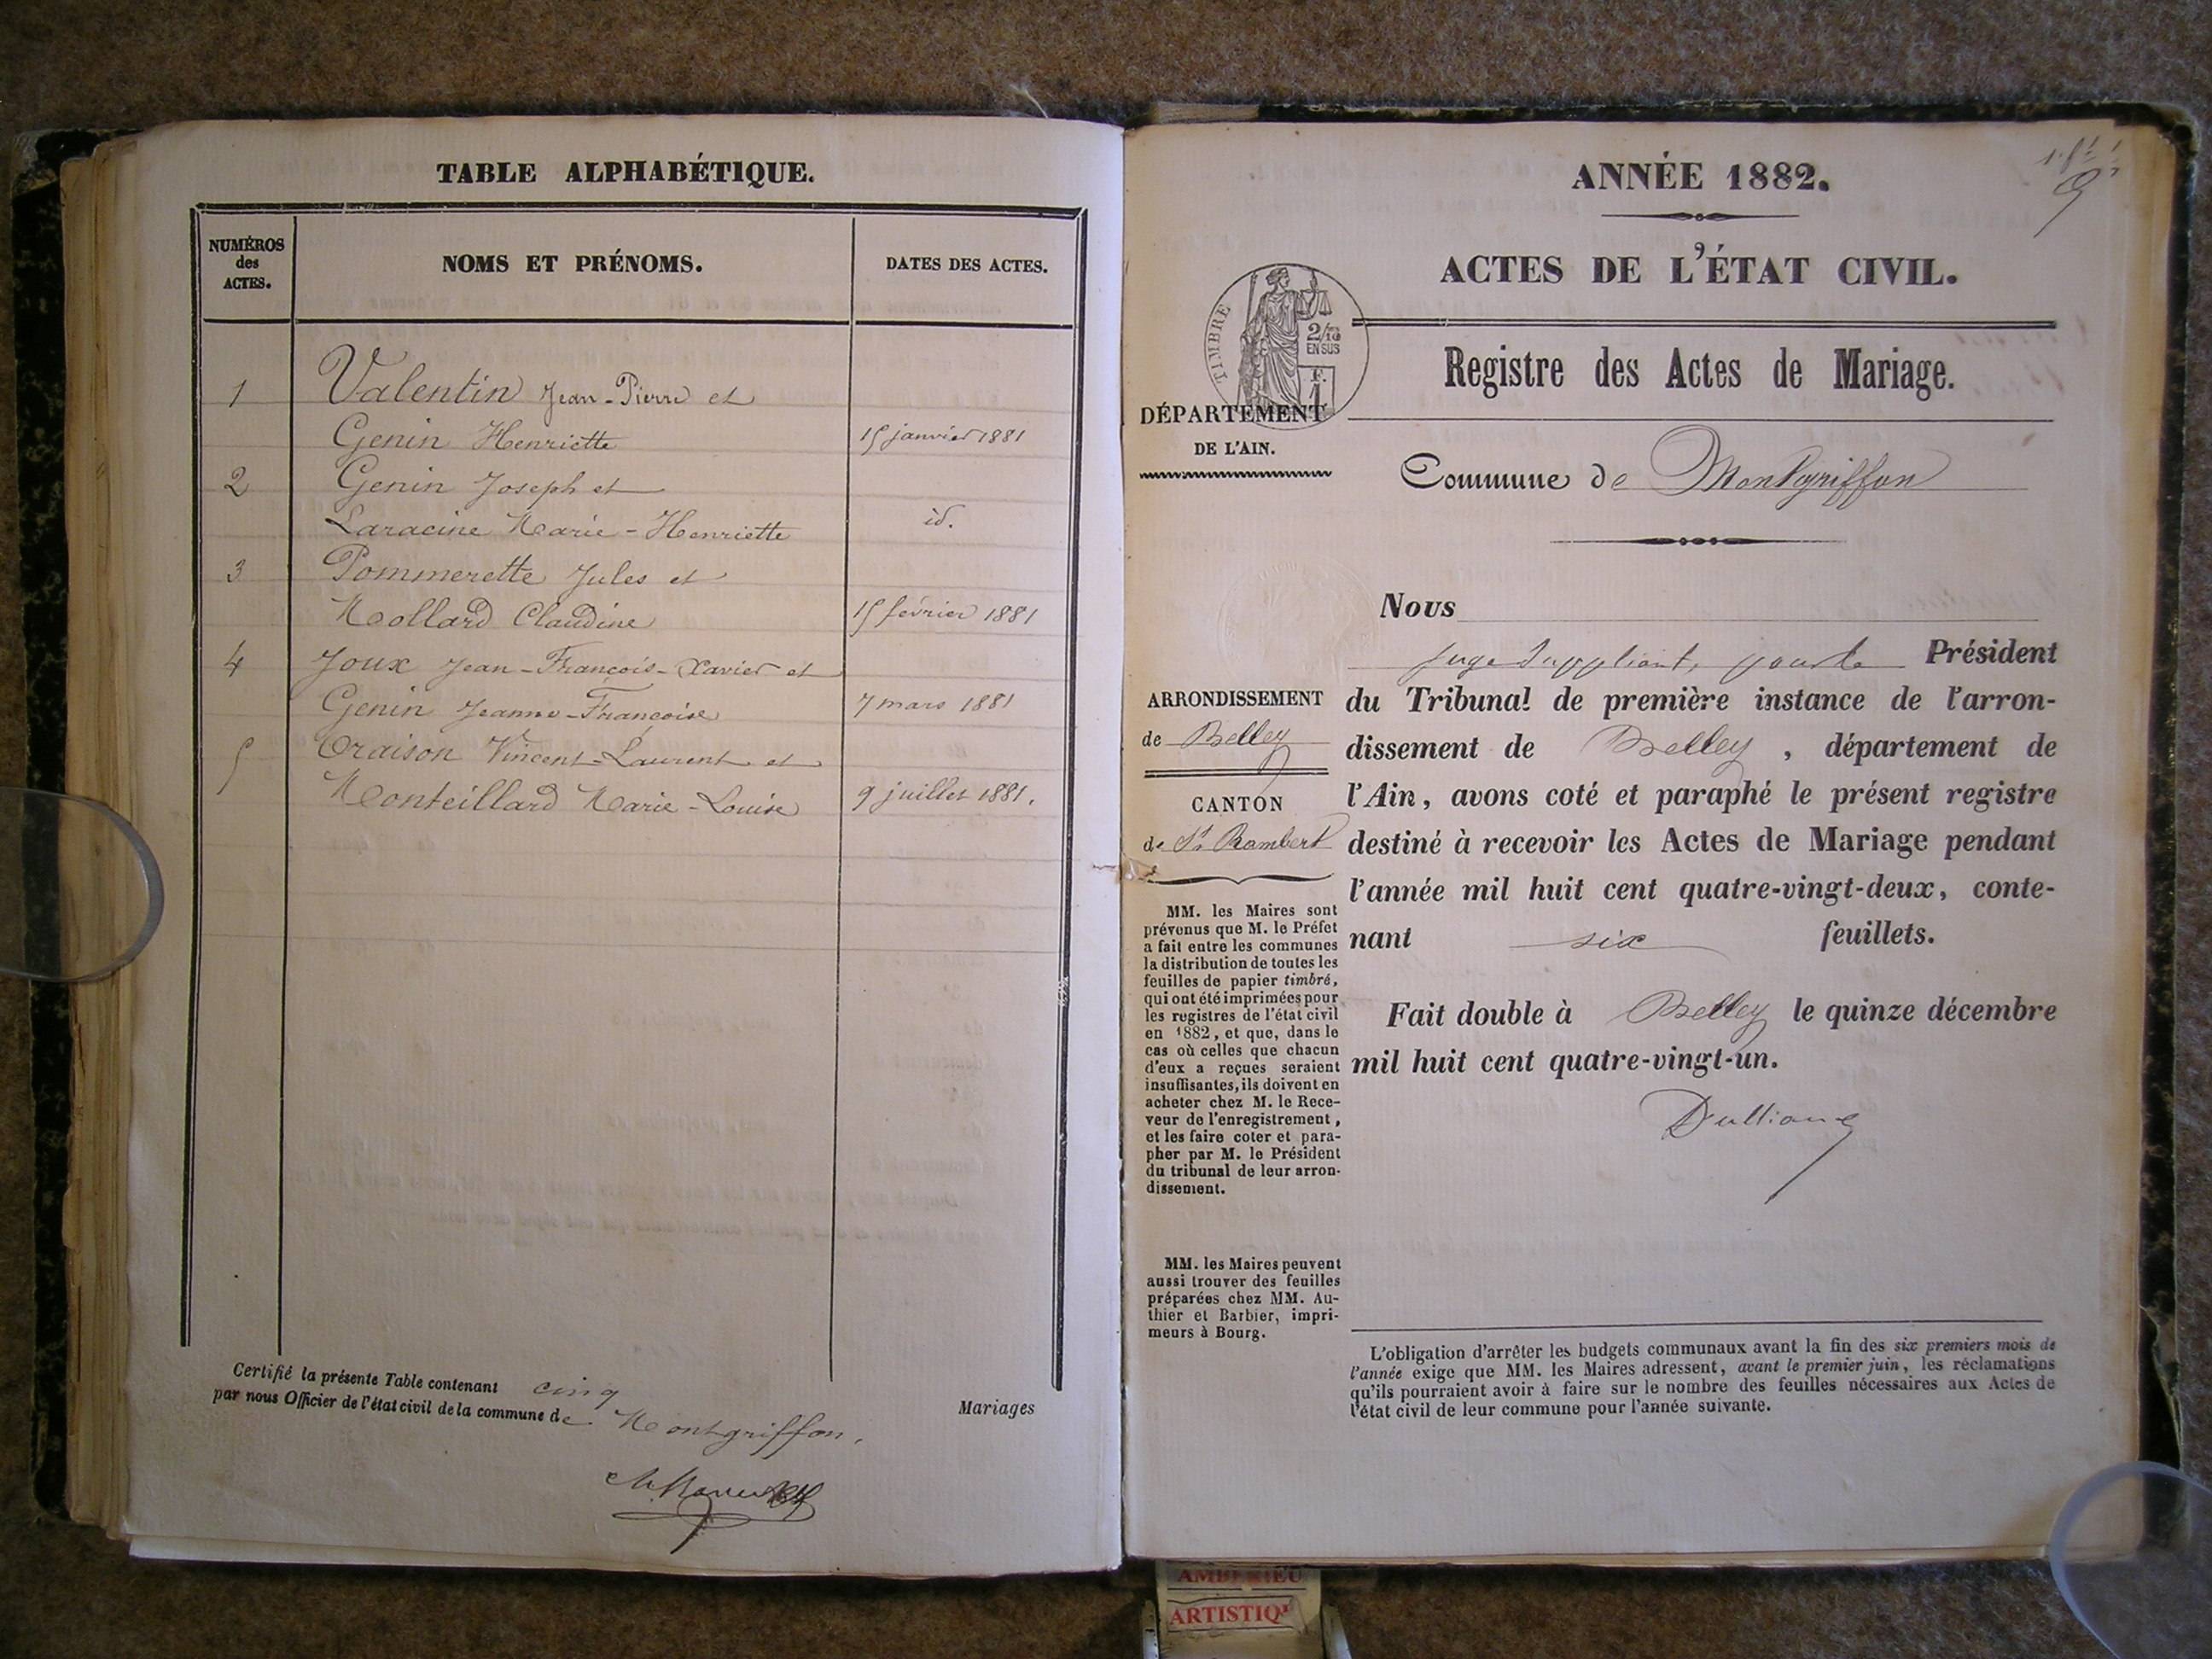 TABLE ALPHABÉTIQUE.
NUMÉROS
des
ACTES.
NOMS ET PRÉNOMS.
DATES DES ACTES.
1 Valentin Jean-Pierre et
Genin Henriette 15 janvier 1881
2 Genin Joseph et
Laracine Marie-Henriette id.
3 Pommerette Jules et
Mollard Claudine 15 février 1881
4 Joux Jean-François-Xavier et
Genin Jeanne-Françoise 7 mars 1881
5 Oraison Vincent-Laurent et
Monteillard Marie-Louise 9 juillet 1881.
Certifié la présente Table contenant cinq Mariages
par nous Officier de l'état civil de la commune de Montgriffon.
ANNÉE 1882.
ACTES DE L'ÉTAT CIVIL.
TIMBRE
2/10
EN SUS
F.
1
Registre des Actes de Mariage.
DÉPARTEMENT
DE L'AIN.
Commune de Montgriffon
ARRONDISSEMENT
de Belley
CANTON
de St Rambert
MM. les Maires sont
prévenus que M. le Préfet
a fait entre les communes
la distribution de toutes les
feuilles de papier timbré,
qui ont été imprimées pour
les registres de l'état civil
en 1882, et que, dans le
cas où celles que chacun
d'eux a reçues seraient
insuffisantes, ils doivent en
acheter chez M. le Rece-
veur de l'enregistrement,
et les faire coter et para-
pher par M. le Président
du tribunal de leur arron-
dissement.
MM. les Maires peuvent
aussi trouver des feuilles
préparées chez MM. Au-
thier et Barbier, impri-
meurs à Bourg.
Nous
juge suppléant, pour le Président
du Tribunal de première instance de l'arron-
dissement de Belley, département de
l'Ain, avons coté et paraphé le présent registre
destiné à recevoir les Actes de Mariage pendant
l'année mil huit cent quatre-vingt-deux, conte-
nant six feuillets.
Fait double à Belley le quinze décembre
mil huit cent quatre-vingt-un.
L'obligation d'arrêter les budgets communaux avant la fin des six premiers mois de
l'année exige que MM. les Maires adressent, avant le premier juin, les réclamations
qu'ils pourraient avoir à faire sur le nombre des feuilles nécessaires aux Actes de
l'état civil de leur commune pour l'année suivante.
AMBERIEU
ARTISTIQ